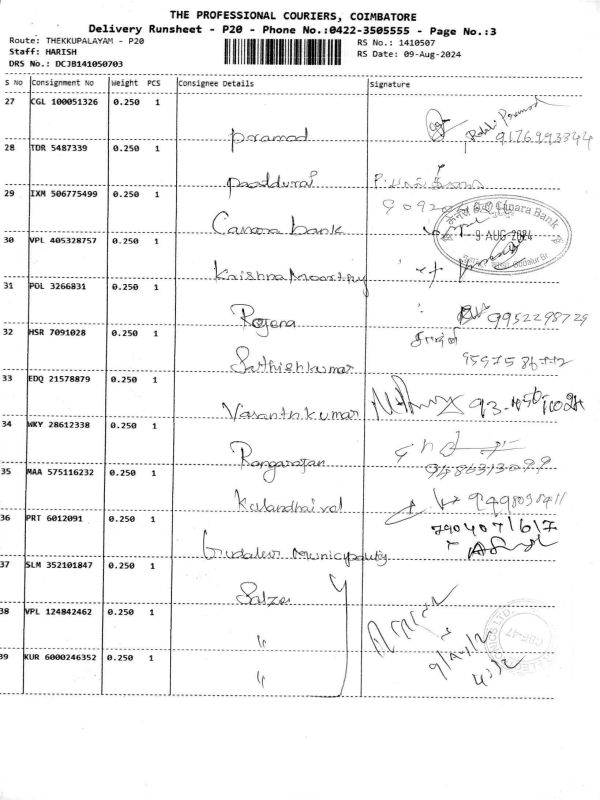 THE PROFESSIONAL COURIERS, COIMBATORE
Delivery Runsheet - P20 - Phone No.:0422-3505555 - Page No.:3
Route: THEKKUPALAYAM - P20
RS No.: 1410507
Staff: HARISH
RS Date: 09-Aug-2024
DRS No.: DCJB141050703
S No Consignment No Weight PCS Consignee Details Signature
27 CGL 100051326 0.250 1
Pramod 9176993344
28 TDR 5487339 0.250 1
29 IXM 506775499 0.250 1
Canara bank
Canara Bank
9 AUG 2024
Gudalur Br.
30 VPL 405328757 0.250 1
Krishna Moorthy
31 POL 3266831 0.250 1
Rojena 9952298729
32 HSR 7091028 0.250 1
Sathishkumar
33 EDQ 21578879 0.250 1
Vasanthkumar
34 WKY 28612338 0.250 1
Rangarajan
35 MAA 575116232 0.250 1
Kulandhaivel
36 PRT 6012091 0.250 1
Gudalur Municipality
37 SLM 352101847 0.250 1
Salzer
38 VPL 124842462 0.250 1
"
39 KUR 6000246352 0.250 1
"